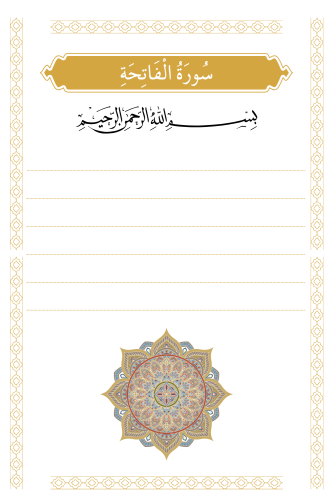 سُورَةُ الْفَاتِحَةِ
بِسْمِ اللهِ الرَّحْمَنِ الرَّحِيمِ